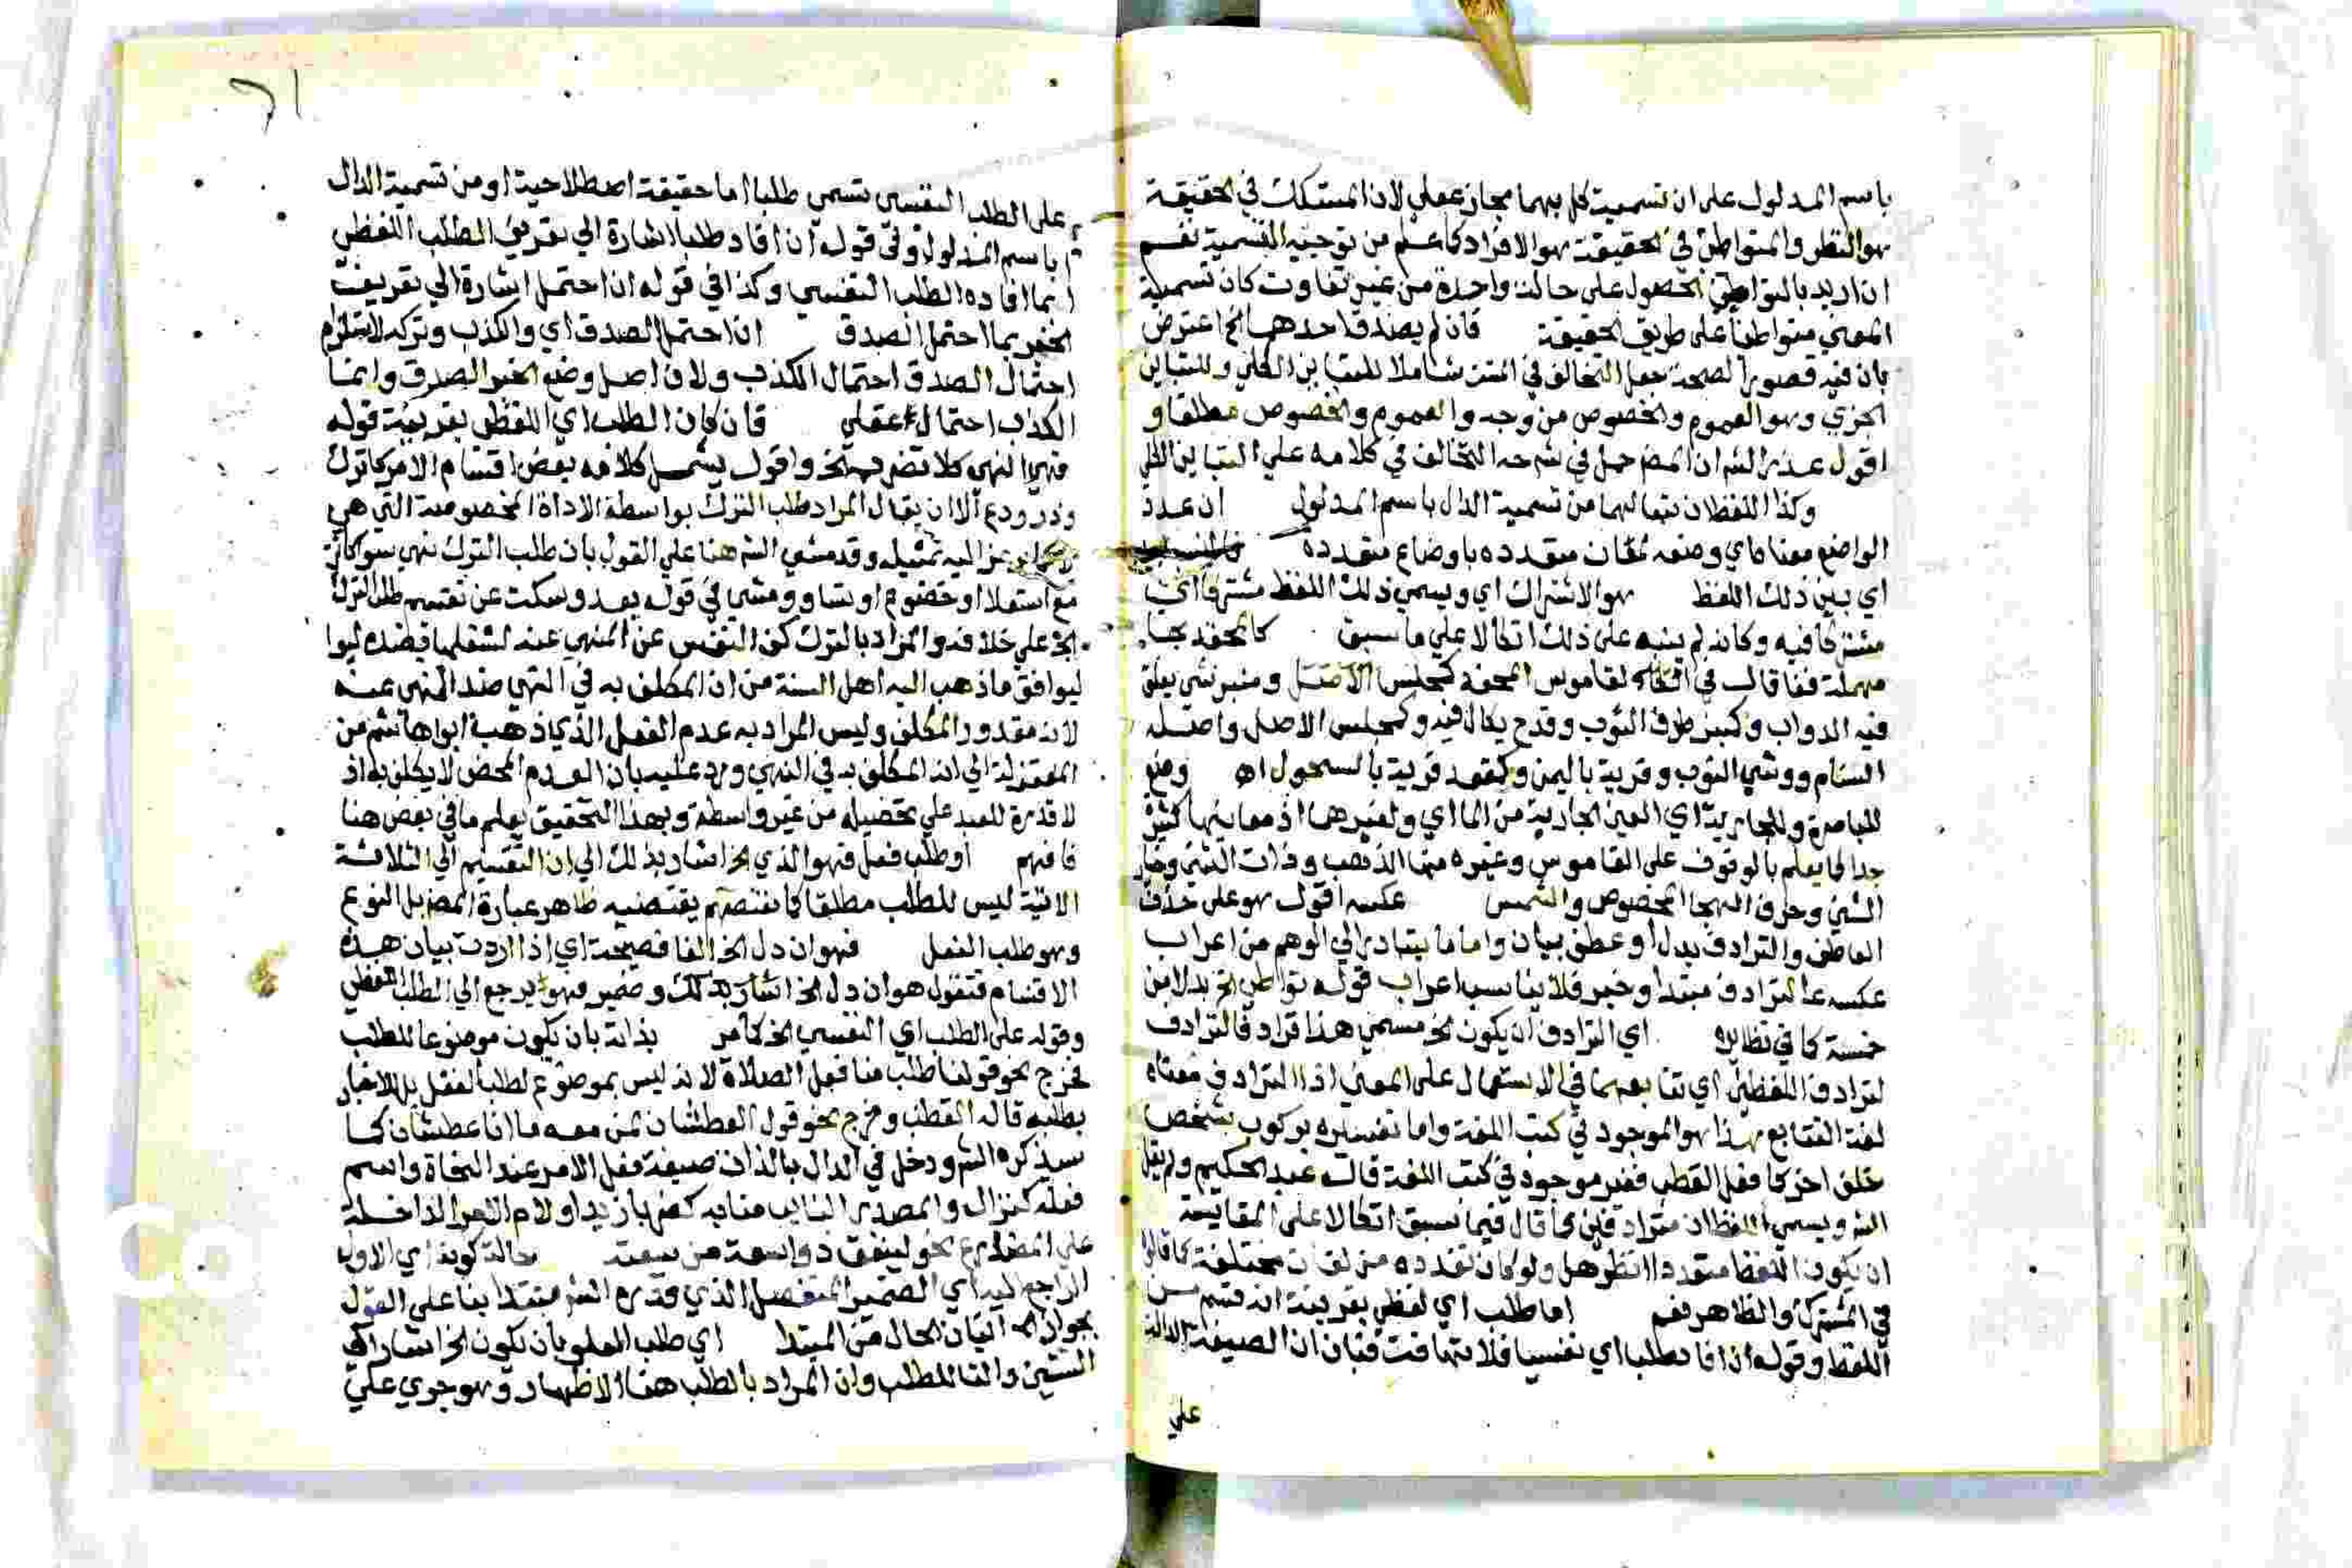 باسم المدلول على ان تسمية كل بهما مجاز عقلي لان المشكك في الحقيقة
هو النظر والمتواطئ في الحقيقة هو الافراد كما علم من توجيه التسمية نعم
ان اريد بالتواطئ الحصول على حالة واحدة من غير تفاوت كان تسمية
المعنى متواطئا على طريق الحقيقة فان لم يصدق احدهما الخ اعترض
بان فيه قصورا لصحة جعل التخالف في المتن شاملا للتباين الكلي وللتباين
الجزي وهو العموم والخصوص من وجه والعموم والخصوص مطلقا و
اقول عذر الشم ان المص حمل في شرحه التخالف في كلامه على التباين الكلي
وكذا اللفظان تبعا لهما من تسمية الدال باسم المدلول ان عدد
الواضع معناه اي وضعه لمعان متعدده باوضاع متعددة
اي بين ذلك اللفظ هو الاشتراك اي ويسمى ذلك اللفظ مشتركا اي
مشتركا فيه وكانه لم ينبه على ذلك اتكالا على ما سبق كالمحفد بحا
مهملة ففا قال في القاموس المحفد كمجلس الاصل ومنبر شي يعلق
فيه الدواب وكمنبر طرف الثوب وقدح يكال فيه وكمجلس الاصل واصل
السنام ووشي الثوب وقرية باليمن وكمقعد قرية بالسحول اه وضع
للباصرة وللجارية اي العين الجارية من الما اي ولغيرهما اذ معانيها كثيرة
جدا كما يعلم بالوقوف على القاموس وغيره منها الذهب وذات الشي وخيار
الشي وحرف الهجا المخصوص والشمس عكسه اقول هو على حذف
العاطف والترادف بدل او عطف بيان واما ما يتبادر الى الوهم من اعراب
عكسه الترادف مبتدا وخبر فلا يناسب اعراب قوله تواطئ الخ بدلا من
خمسة كما في نظايره اي الترادف ان يكون الخ مسمى هذا ترادفا لترادف
لترادف اللفظين اي تتابعهما في الاستعمال على المعنى اذ الترادف معناه
لغة التتابع هذا هو الموجود في كتب اللغة واما تفسيره بركوب شخص
خلف اخر كما فعل القطب فغير موجود في كتب اللغة قاله عبد الحكيم ولم يقل
الشم ويسمى اللفظان مترادفين كما قال فيما سبق اتكالا على المقايسة
ان يكون اللفظ متعددا انظر هل ولو كان تعدده من لغات مختلفة كما قالوا
في المشترك والظاهر نعم اما طلب اي لفظي بقرينة انه قسم من
اللفظ وقوله ان افاد طلبا اي نفسيا فلا تهافت فبان ان الصيغة الدالة
علي
٢١
على الطلب النفسي تسمى طلبا اما حقيقة اصطلاحية او من تسمية الدال
باسم المدلول وفي قوله ان افاد طلبا اشارة الى تعريف الطلب اللفظي
بما افاده الطلب النفسي وكذا في قوله ان احتمل اشارة الى تعريف
الخبر بما احتمل الصدق ان احتمل الصدق اي والكذب وتركه لاستلزام
احتمال الصدق احتمال الكذب ولان اصل وضع الخبر الصدق وانما
الكذب احتمال عقلي فان كان الطلب اي اللفظي بقرينة قوله
فهي النهي كلا تضرب الخ واقول يشمل كلامه بعض اقسام الامر كاترك
وذر ودع الا ان يقال المراد طلب الترك بواسطة الاداة المخصوصة التي هي
اليه تمثيله وقد مشى الشم هنا على القول بان طلب الترك نهي سوا كان
مع استعلا او خضوع او تساو ومشى في قوله بعد وسكت عن تقسيم طلب الترك
الخ على خلافه والمراد بالترك كف النفس عن المنهي عنه لشغلها بضده
ليوافق ما ذهب اليه اهل السنة من ان المكلف به في النهي ضد المنهي عنه
لانه مقدور المكلف وليس المراد به عدم الفعل الذي ذهب ابوا هاشم من
المعتزلة الى انه المكلف به في النهي ورد عليه بان العدم المحض لا يكلف به اذ
لا قدرة للعبد على تحصيله من غير واسطة وبهذا التحقيق يعلم ما في بعض هنا
فافهم او طلب فعل فهو الذي الخ اشار بذلك الى ان التقسيم الى الثلاثة
الاتية ليس للطلب مطلقا كما يقتضيه ظاهر عبارة المص بل النوع
وهو طلب الفعل فهو ان دل الخ الفا فصيحة اي اذا اردت بيان هذه
الاقسام فتقول هو ان دل الخ اشار بذلك وضمير فهو يرجع الى الطلب اللفظي
وقوله على الطلب اي النفسي الخ كامر بذاته بان يكون موضوعا للطلب
فخرج نحو قولنا طلب منا فعل الصلاة لانه ليس بموضوع لطلب الفعل بل للاخبار
بطلبه قاله القطب وخرج نحو قول العطشان لمن معه ما انا عطشان كما
سيذكره الشم ودخل في الدال بالذات صيغة فعل الامر عند النحاة واسم
فعله كنزال والمصدر النايب منابه كضربا زيدا ولام الامر الداخلة
على المضارع نحو لينفق ذو سعة من سعته حالة كونه اي الاول
الراجع اليه اي الضمير المنفصل الذي قدره الشم مبتدا بنا على القول
بجواز اتيان الحال من المبتدا اي طلب العلو بان تكون الخ اشار الى
السين والتا للطلب وان المراد بالطلب هنا الاظهار وهو جري على